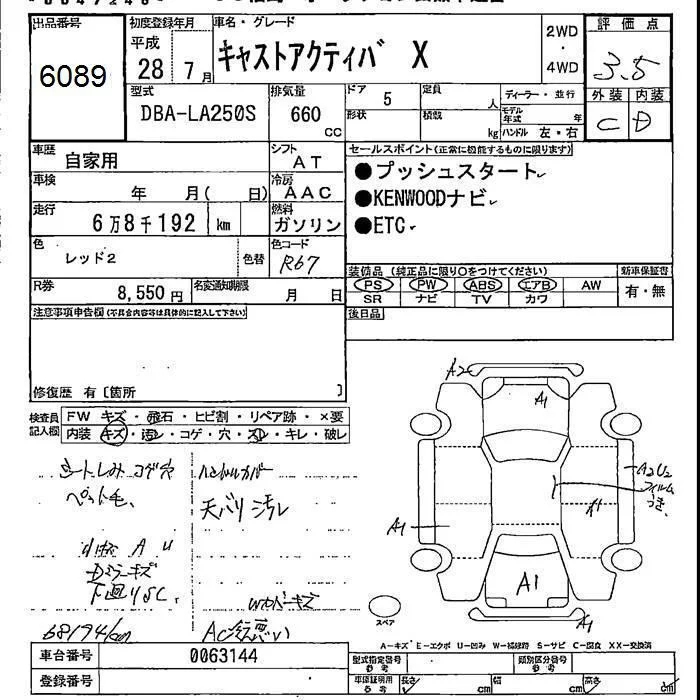 出品番号
6089
初度登録年月
平成
28 7月
車名・グレード
キャストアクティバ X
2WD
・
4WD
評価点
3.5
外装 内装
C D
型式
DBA-LA250S
排気量
660
CC
ドア
5
定員
人
ディーラー・並行
形状
積載
kg
モデル年式
年
ハンドル 左・右
車歴
自家用
シフト
AT
セールスポイント(正常に機能するものに限ります)
●プッシュスタート
●KENWOODナビ
●ETC
車検
年 月( 日)
冷房
AAC
走行
6万8千192 km
燃料
ガソリン
色
レッド2
色替
色コード
R67
R券
8,550円
名変通知期限
月 日
装備品(純正品に限り○をつけてください)
PS PW ABS エアB AW
SR ナビ TV カワ
新車保証書
有・無
後日品
注意事項申告欄(不具合内容は具体的に記入して下さい)
修復歴 有〔箇所 〕
検査員記入欄
FW キズ・飛石・ヒビ割・リペア跡・×要
内装 キズ・汚レ・コゲ・穴・スレ・キレ・破レ
シートしみ コゲ穴
ペット毛、
ハンドルカバー
天バリ汚レ
A U
Dミラーキズ
下廻りSC.
68194km
AC冷悪い
A2
A1
A2U2
フィルム
つき
A1
A1
A1
スペア
A-キズ E-エクボ U-凹み W-補修跡 S-サビ C-腐食 XX-交換済
車台番号
0063144
登録番号
型式指定番号
参考
類別区分番号
参考
車検証明用
参考
長さ cm
幅 cm
高さ cm